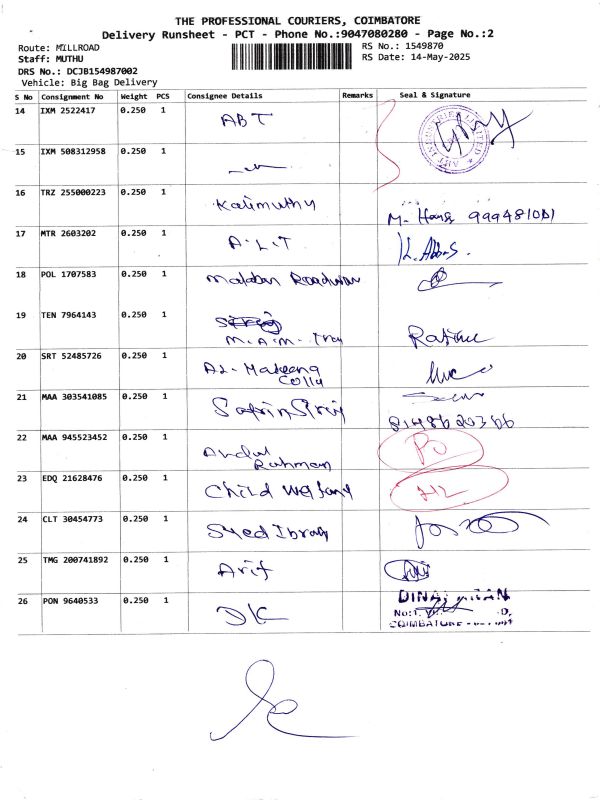 THE PROFESSIONAL COURIERS, COIMBATORE
Delivery Runsheet - PCT - Phone No.:9047080280 - Page No.:2
Route: MILLROAD
RS No.: 1549870
Staff: MUTHU
RS Date: 14-May-2025
DRS No.: DCJB154987002
Vehicle: Big Bag Delivery
S No Consignment No Weight PCS Consignee Details Remarks Seal & Signature
14 IXM 2522417 0.250 1 ABT
15 IXM 508312958 0.250 1
16 TRZ 255000223 0.250 1 Kalimuthy M.
17 MTR 2603202 0.250 1 A.L.T
18 POL 1707583 0.250 1
19 TEN 7964143 0.250 1
M.A.M.
20 SRT 52485726 0.250 1 AL-
21 MAA 303541085 0.250 1
22 MAA 945523452 0.250 1 Abdul
Rahman
23 EDQ 21628476 0.250 1 Child
24 CLT 30454773 0.250 1 Syed
25 TMG 200741892 0.250 1 Arif
26 PON 9640533 0.250 1 DK
COIMBATORE